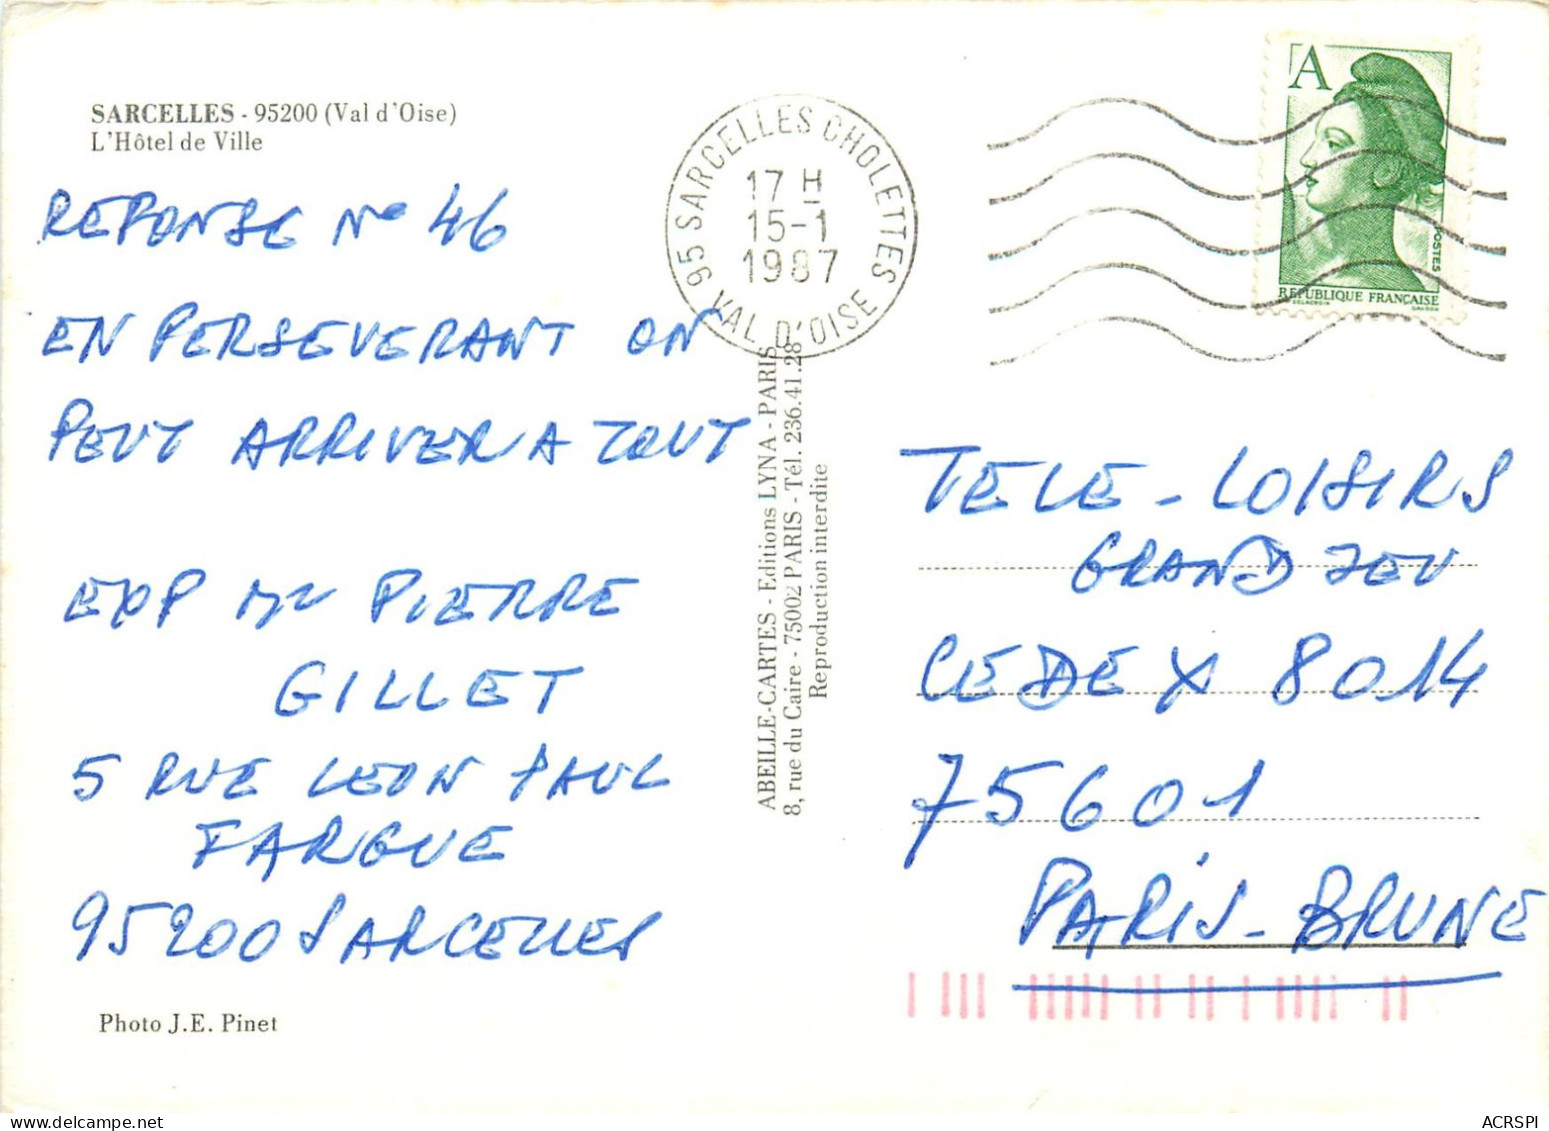 SARCELLES - 95200 (Val d'Oise)
L'Hôtel de Ville
REPONSE N° 46
EN PERSEVERANT ON
PEUT ARRIVER A TOUT
EXP Mr PIERRE
GILLET
5 RUE LEON PAUL
FARGUE
95200 SARCELLES
Photo J.E. Pinet
95 SARCELLES CHOLETTES
17 H
15-1
1987
VAL D'OISE
ABEILLE-CARTES - Editions LYNA - PARIS
8, rue du Caire - 75002 PARIS - Tél. 236.41.28
Reproduction interdite
A
POSTES
REPUBLIQUE FRANÇAISE
DELACROIX
GANDON
TELE - LOISIRS
GRAND JEU
CEDEX 8014
75601
PARIS - BRUNE
ACRSPI